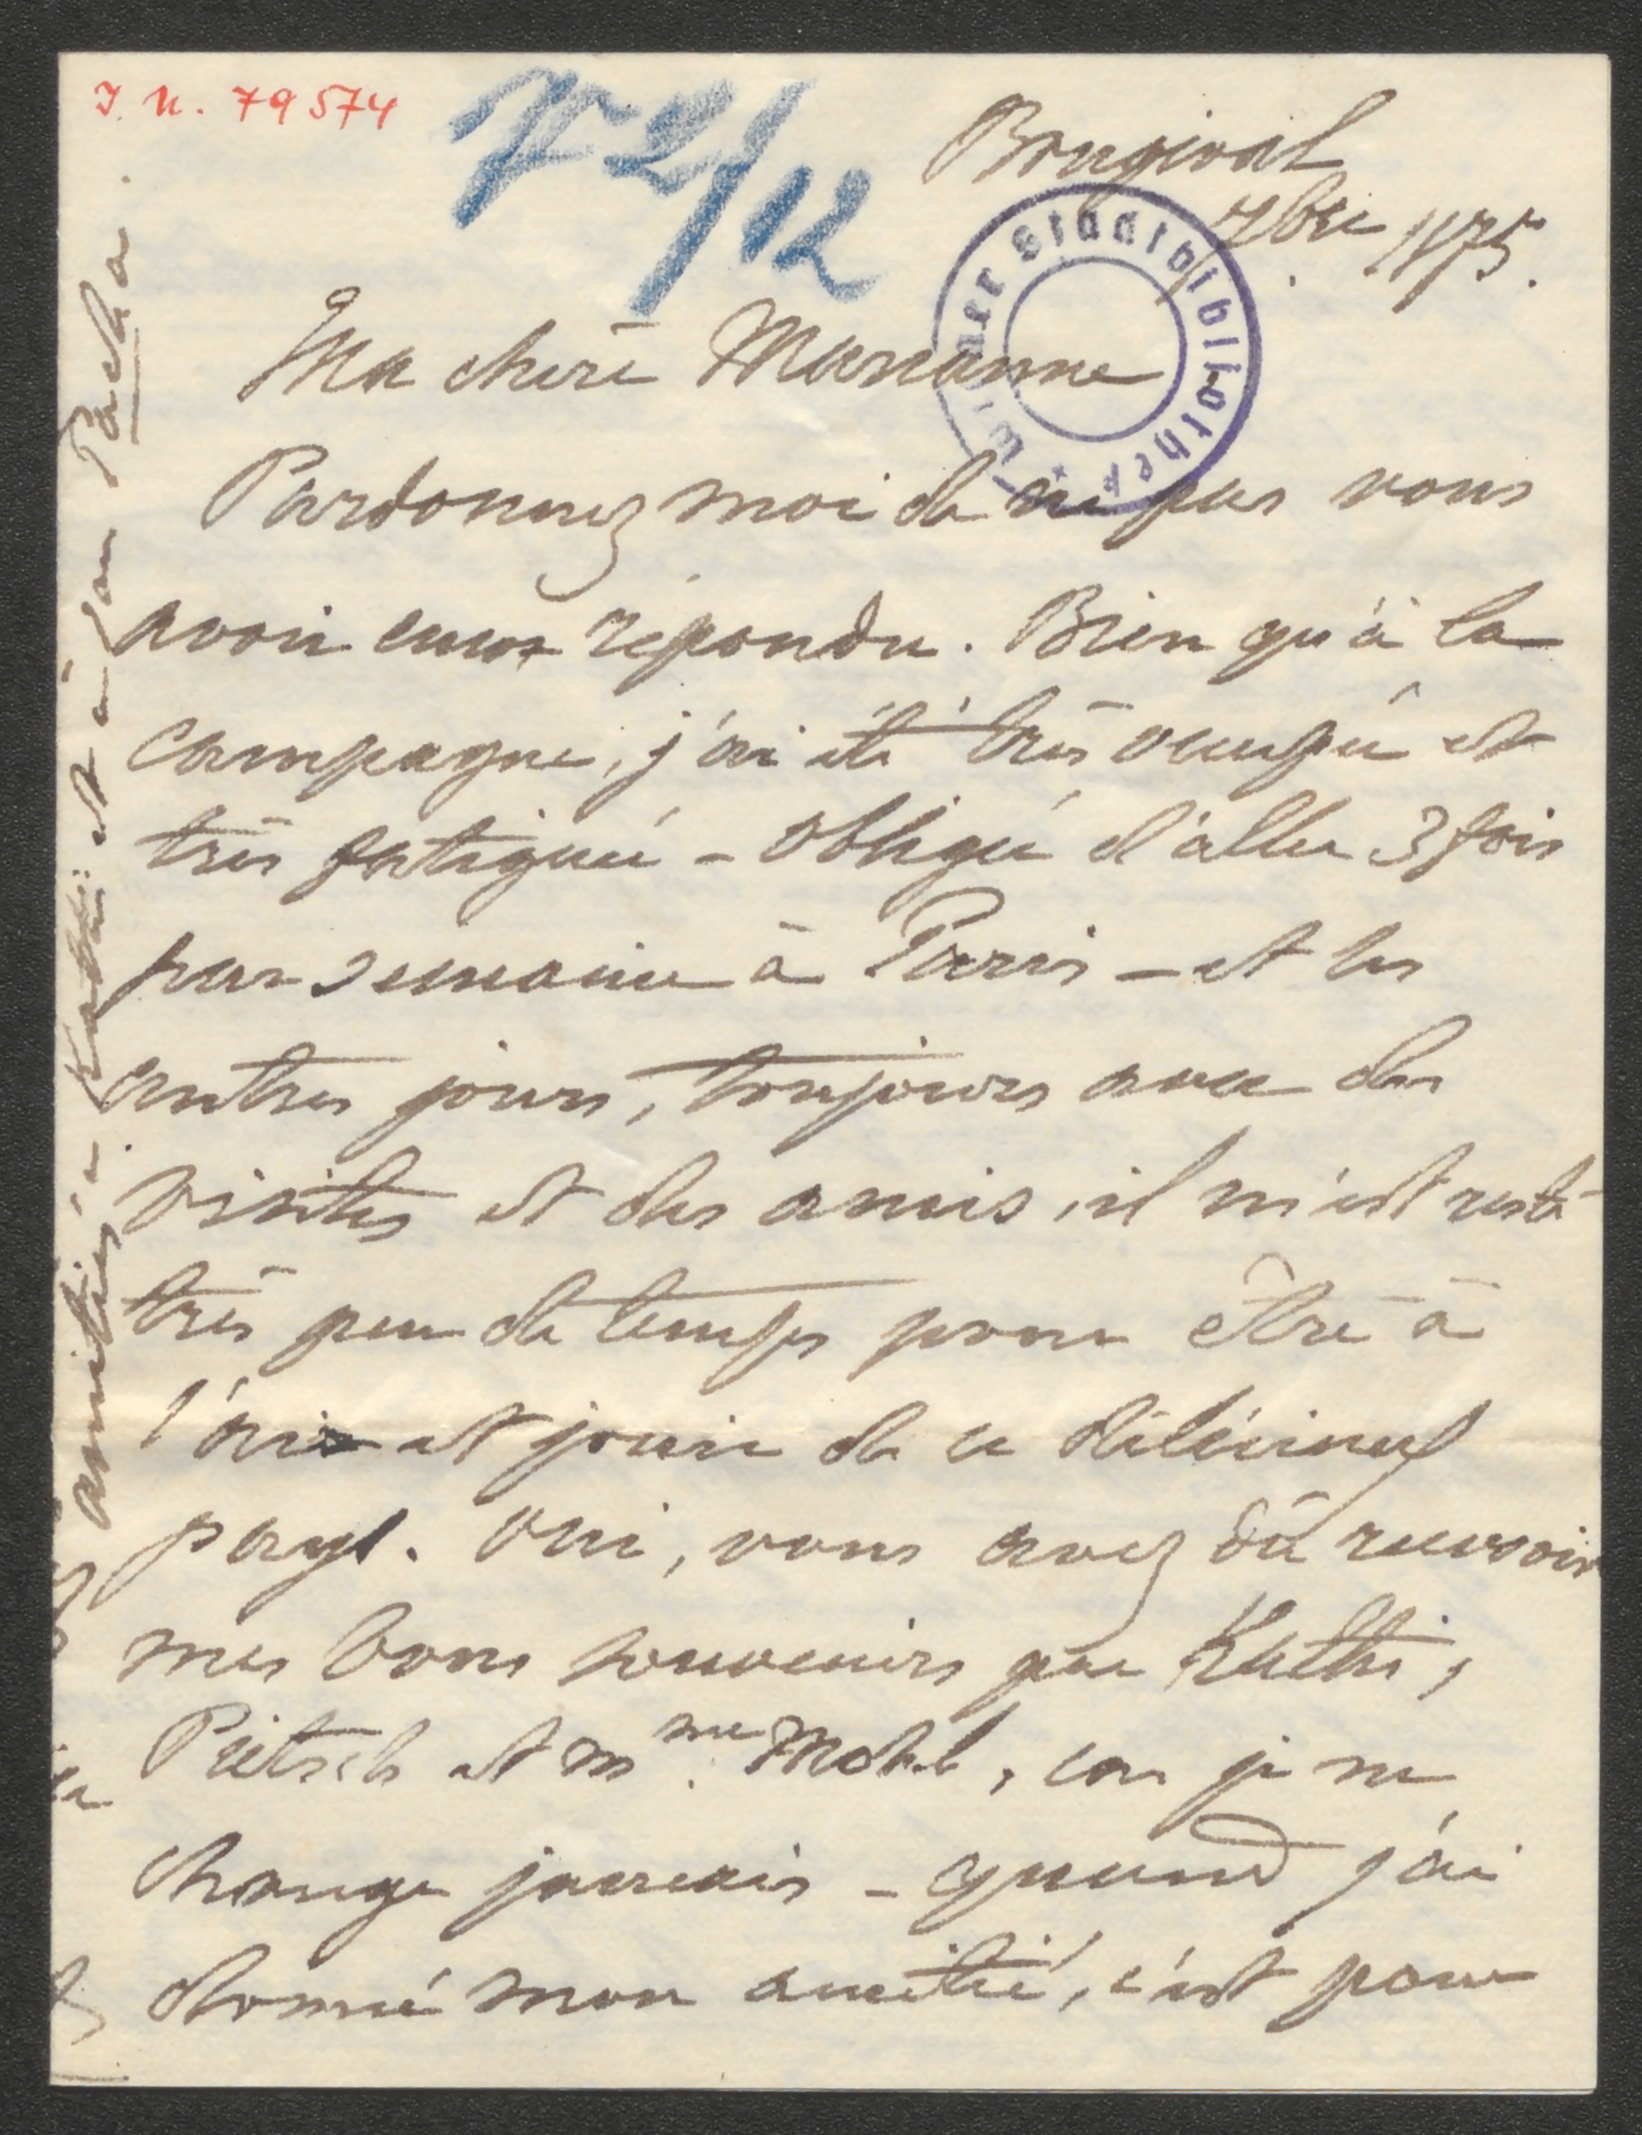 J. N. 79574
72/12
Bougival
7bre 1875.
Wiener Stadtbibliothek
Ma chère Marianne
Pardonnez moi de ne pas vous
avoir encor répondu. Bien qu'à la
campagne, j'ai été très occupée et
très fatiguée - obligée d'aller 3 fois
par semaine à Paris - et les
autres jours, toujours avec des
visites et des amis, il m'est resté
très peu de temps pour être à
l'air et jouir de ce délicieux
pays. Oui, vous avez dû recevoir
mes bons souvenirs par Kathi,
Pietsch et Mme. Mohl, car je ne
change jamais - quand j'ai
donné mon amitié, c'est pour
amitiés à Kathi et à Jean Pacha.